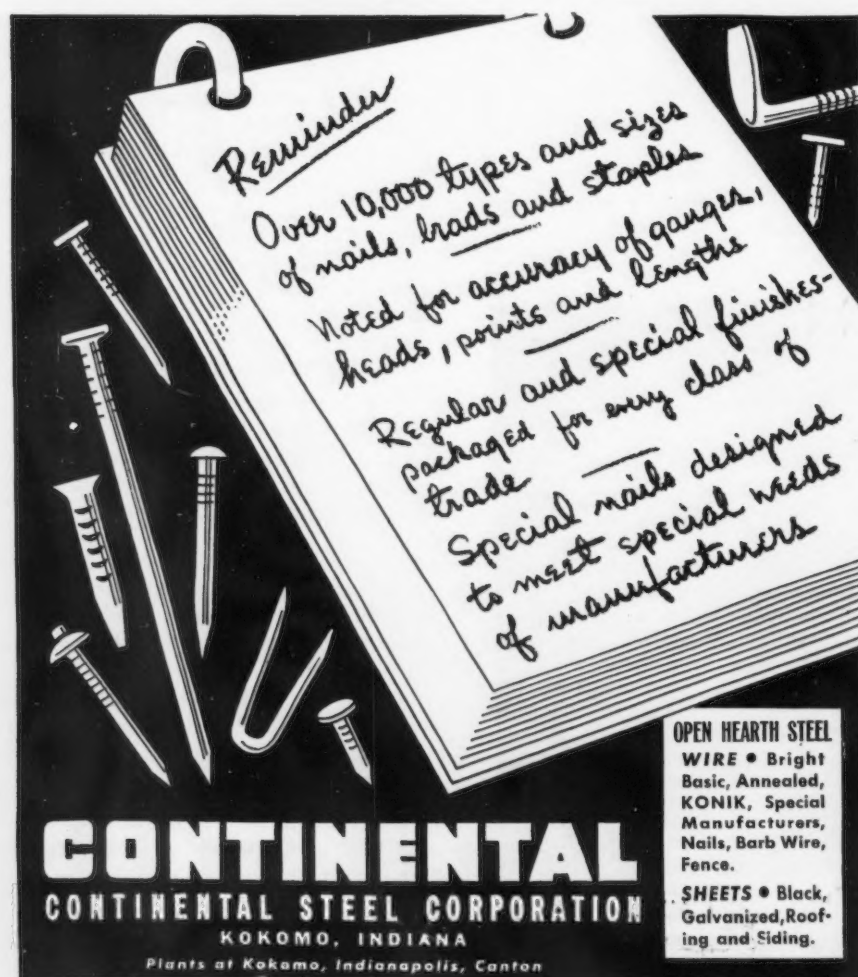 Reminder
Over 10,000 types and sizes
of nails, brads and staples
Noted for accuracy of gauges,
heads, points and lengths
Regular and special finishes-
packaged for every class of
trade
Special nails designed
to meet special needs
of manufacturers
OPEN HEARTH STEEL
WIRE • Bright
Basic, Annealed,
KONIK, Special
Manufacturers,
Nails, Barb Wire,
Fence.
SHEETS • Black,
Galvanized, Roof-
ing and Siding.
CONTINENTAL
CONTINENTAL STEEL CORPORATION
KOKOMO, INDIANA
Plants at Kokomo, Indianapolis, Canton